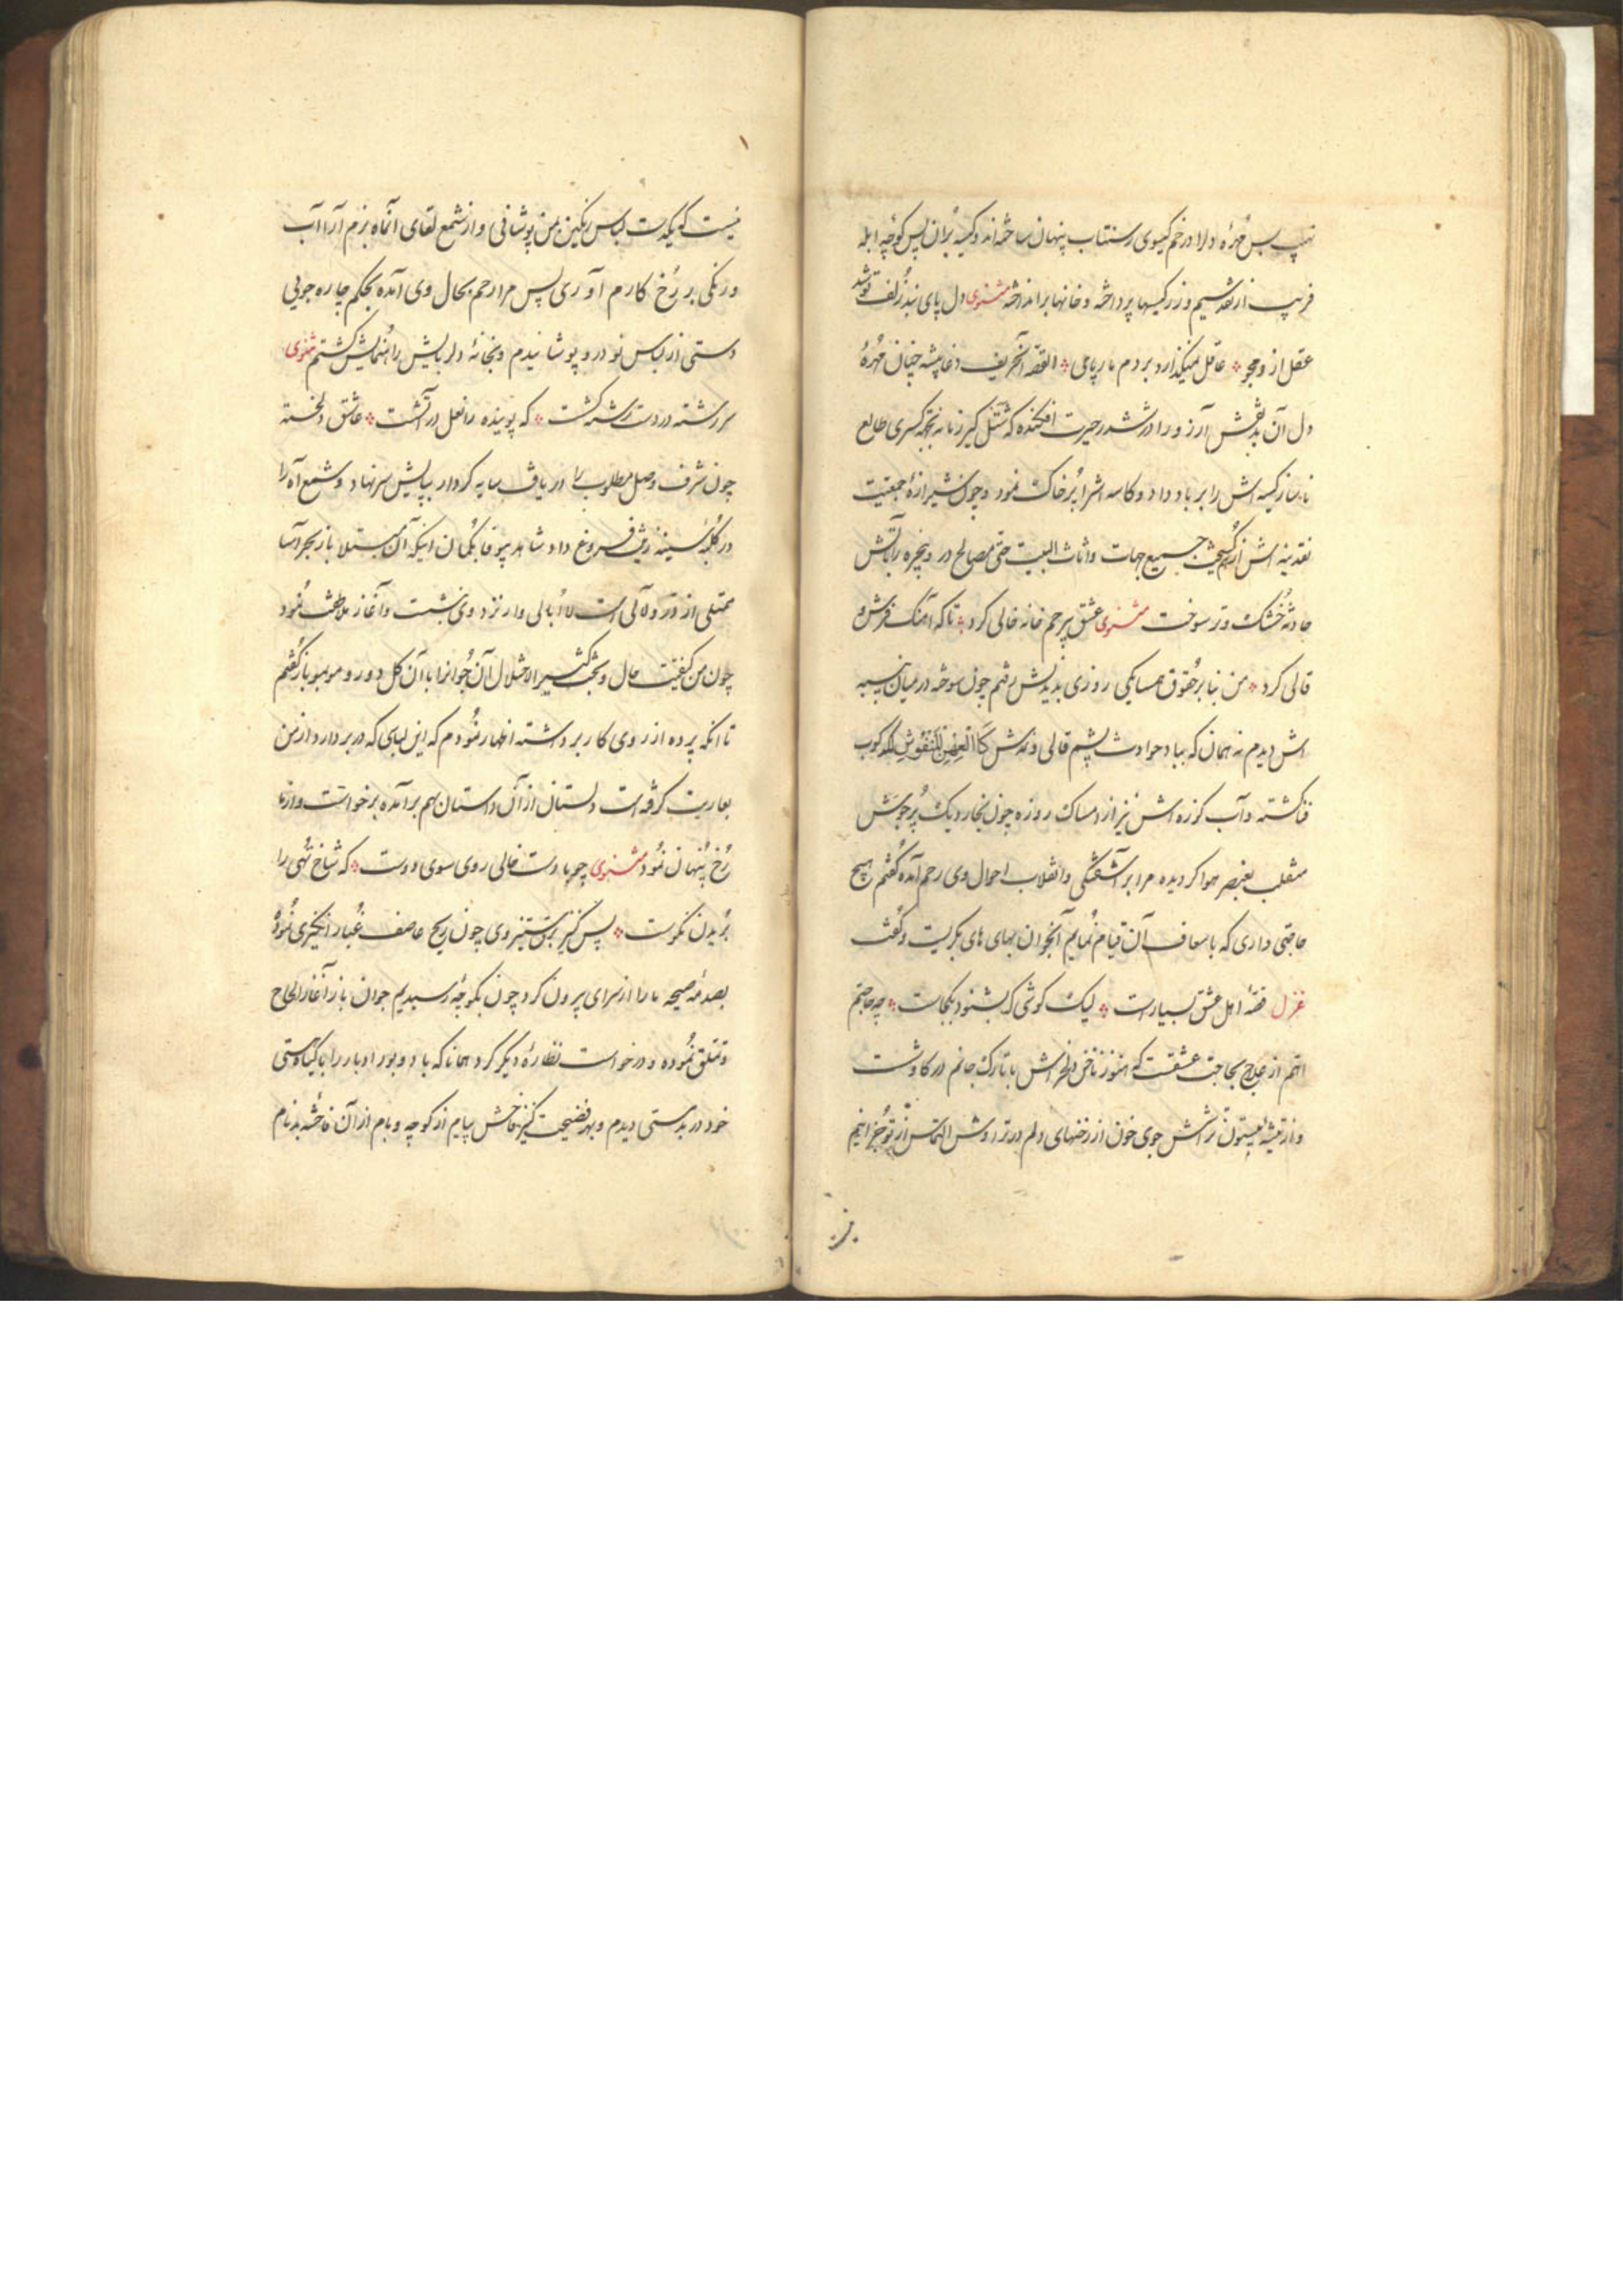 بس مهره ولا در خم کیسوی رسنتاب پنهان ساخته اند و کیسه بران پس کوچه ابله
فریب از نقد سیم و زر کیسها پرداخته و خانها برانداخته مثنوی دل پای بند زلف تو شد
عقل از و مجو عاقل نمیکذارد بر دم مار پا می القصه آنحریف دغا پیشه چنان مهره
دل آن بد نقش آرزو را در ششدر حیرت افکنده که شتل کیر زمانه
ناساز کیسه اش را بر باد داد و کاسه اشرا بر خاک نمود و چون شیرازه جمعیت
نقدینه اش از هم کسیخت جمیع جهات و اثاث البیت حتی مصالح در و پنجره را باتش
حادثه خشک و تر سوخت مثنوی عشق بیرحم خانه خالی کرد تا که آهنک فرش و
قالی کرد من بنا بر حقوق همسایکی روزی بدیدنش رفتم چون سوخته در میان پنبه
اش دیدم نه همان که بباد حوادث پشم قالی و نمدش کالعهن المنفوش لکدکوب
فنا کشته و آب کوزه اش نیز از امساک روزه چون بخار دیک پر جوش
منقلب بعنصر هوا کردیده مرا بر آشفتکی و انقلاب احوال وی رحم آمده کفتم هیچ
حاجتی داری که باسعاف آن قیام نمایم آنجوان بهای های بکریست و کفت
غزل قصه اهل عشق بسیارست لیک کوشی که بشنود بکجاست چه حاجتم
اهم از علاج بحاجت عشقست که هنوز ناخن دلخراش با تارک جانم در کاوشست
و از تیشه بیستون تراش جوی خون از زخمهای دلم در تراوش التماس از تو جز اینم
نیست که یکدست لباس رنکین بمن پوشانی و از شمع لقای آنماه بزم آرا آب
و رنکی بر رخ کارم آوری پس مرا رحم بحال وی آمده بحکم چاره جویی
دستی از لباس نو در و پوشانیدم و بخانه دلربایش راهنمایش کشتم مثنوی
سر رشته در دست سرکشت که پوینده را نعل در آتشست عاشق دلخسته
چون شرف وصل مطلوب را دریافت سایه کردار بپایش سر نهاد و شمع آه را
در کلبه سینه فروغ داد شاهد بیوفا بکمان اینکه آن مبتلا باز بحر آسا
ممتلی از درر و لآلی است لا ابالی وار نزد وی نشست و آغاز ملاطفت نمود
چون من کیفیت حال و کثیر الاختلال آن جوانرا با آن کل دورو مو بمو باز کفتم
تا آنکه پرده از روی کار برداشته اظهار نمودم که این لباسی که در بر دارد از من
بعاریت کرفته است دلستان از آن داستان بهم برآمده برخواست و از ما
رخ پنهان نمود مثنوی چو با دست خالی روی سوی دوست که شاخ تهی را
بریدن نکوست پس کنیزش وی چون ریح عاصف غبار انکیزی نمود
بصدمه صیحه ما را از سرای بیرون کرد چون بکوچه رسیدیم جوان باز آغاز الحاح
و تملق نموده و درخواست نظاره دیکر کرد همانا که باد دبور ادبار را با کیاه هستی
خود در بدمستی دیدم و بهر فضیحت کنیز فاحش پیام از کوچه و بام از آن فاحشه بدنام